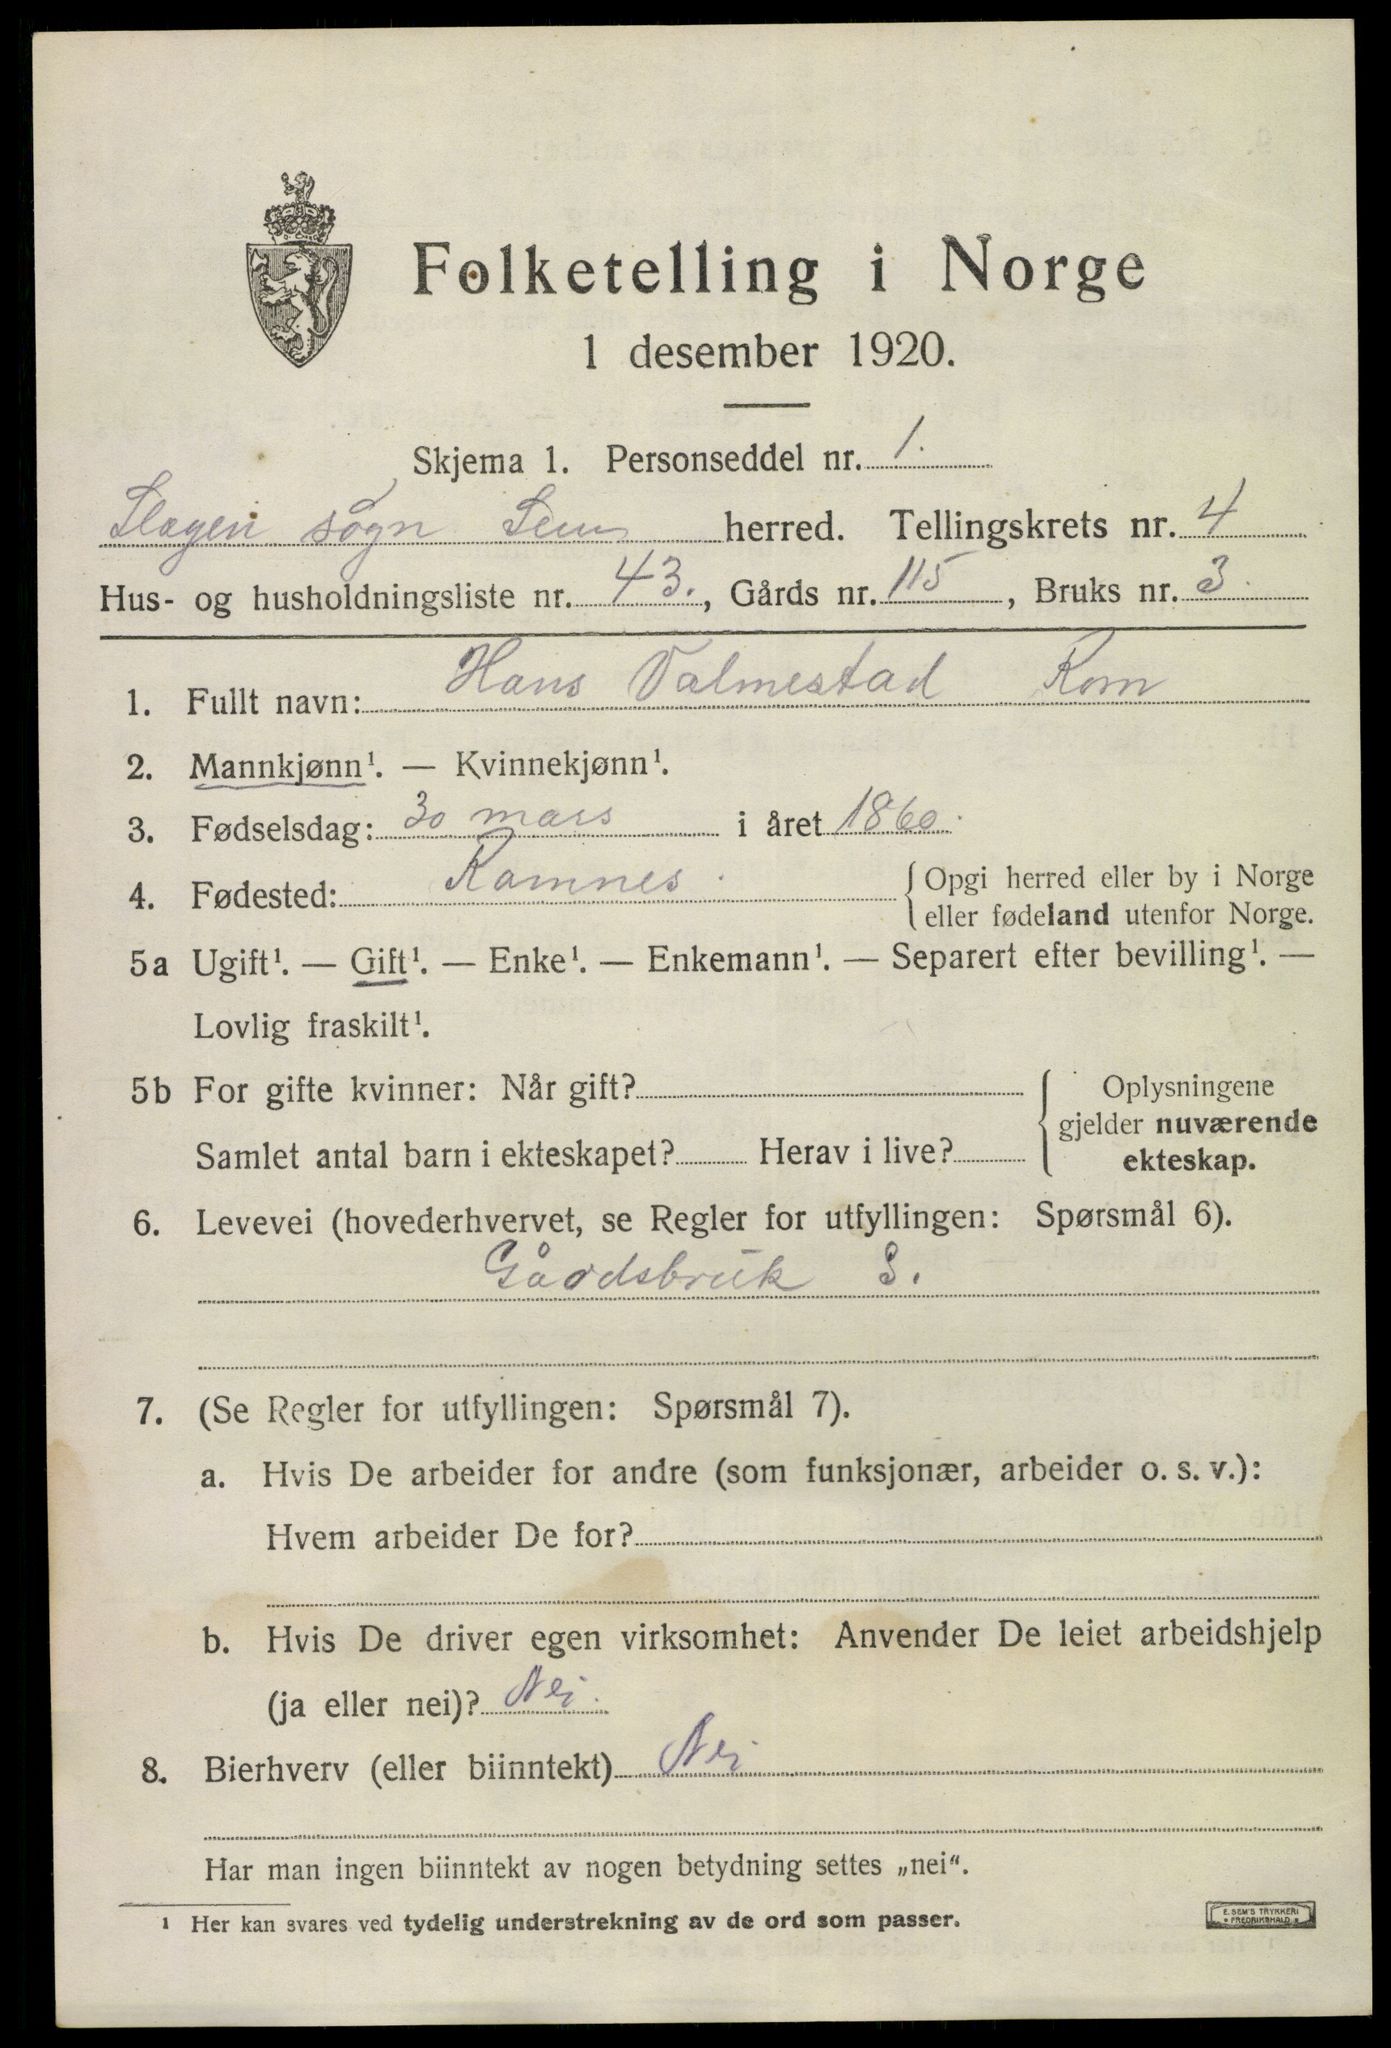 Folketelling i Norge
1 desember 1920.
Skjema 1. Personseddel nr. 1.
Slagen sogn Sem herred. Tellingskrets nr. 4
Hus- og husholdningsliste nr. 43., Gårds nr. 115, Bruks nr. 3.
1. Fullt navn: Hans Valmestad Rom
2. Mannkjønn¹. — Kvinnekjønn¹.
3. Fødselsdag: 30 mars i året 1860.
4. Fødested: Ramnes. {Opgi herred eller by i Norge
eller fødeland utenfor Norge.
5a Ugift¹. — Gift¹. — Enke¹. — Enkemann¹. — Separert efter bevilling¹. —
Lovlig fraskilt¹.
5b For gifte kvinner: Når gift? { Oplysningene
gjelder nuværende
Samlet antal barn i ekteskapet? Herav i live? ekteskap.
6. Levevei (hovederhvervet, se Regler for utfyllingen: Spørsmål 6).
Gårdsbruk S.
7. (Se Regler for utfyllingen: Spørsmål 7).
a. Hvis De arbeider for andre (som funksjonær, arbeider o. s. v.):
Hvem arbeider De for?
b. Hvis De driver egen virksomhet: Anvender De leiet arbeidshjelp
(ja eller nei)? Nei.
8. Bierhverv (eller biinntekt) Nei
Har man ingen biinntekt av nogen betydning settes „nei“.
¹ Her kan svares ved tydelig understrekning av de ord som passer.
E. SEM'S TRYKKERI
FREDRIKSHALD